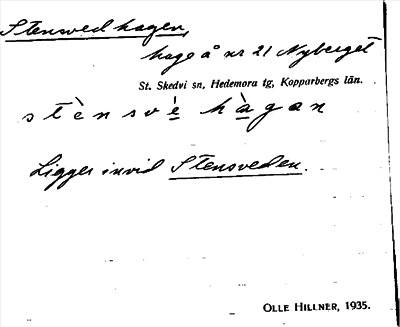 Stensvedhagen,
hage å nr 21 Nyberget
St. Skedvi sn, Hedemora tg, Kopparbergs län.
stènsvè̱ hà̱gan
Ligger invid Stensveden.
OLLE HILLNER, 1935.